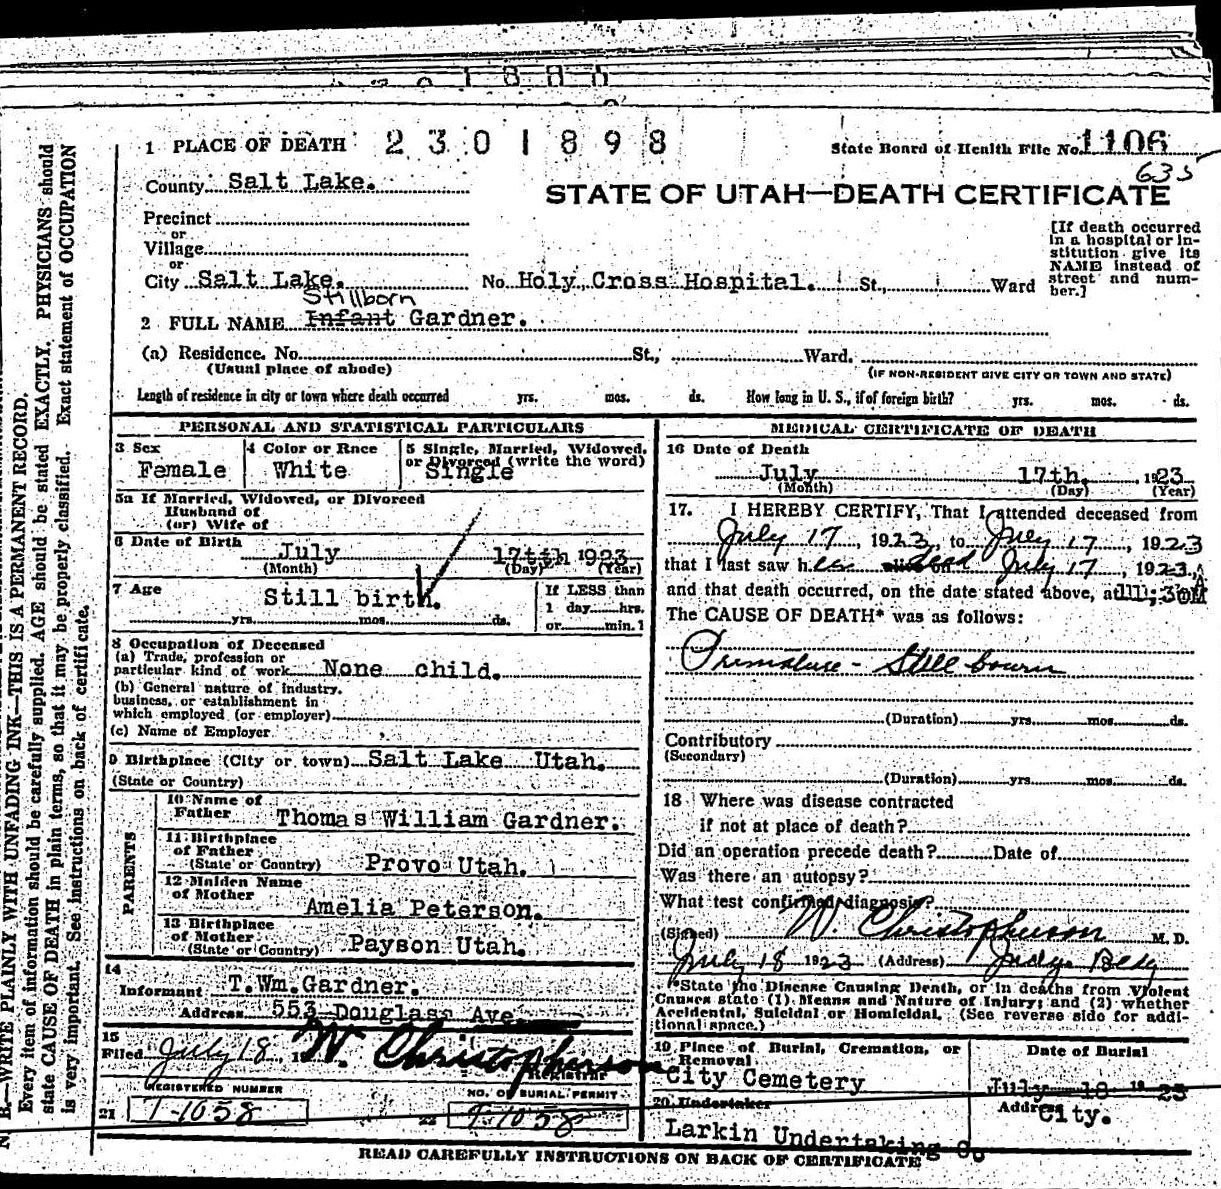 1 PLACE OF DEATH 2301898 State Board of Health File No. 1106
635
County Salt Lake.
STATE OF UTAH—DEATH CERTIFICATE
Precinct
or
Village
or
City Salt Lake. No. Holy Cross Hospital. St., Ward
[If death occurred
in a hospital or in-
stitution give its
NAME instead of
street and num-
ber.]
Stillborn
2 FULL NAME Infant Gardner.
(a) Residence. No. St., Ward.
(Usual place of abode) (IF NON-RESIDENT GIVE CITY OR TOWN AND STATE)
Length of residence in city or town where death occurred yrs. mos. ds. How long in U. S., if of foreign birth? yrs. mos. ds.
PERSONAL AND STATISTICAL PARTICULARS
3 Sex
Female
4 Color or Race
White
5 Single, Married, Widowed,
or Divorced (write the word)
Single
5a If Married, Widowed, or Divorced
Husband of
(or) Wife of
6 Date of Birth
July 17tth 1923
(Month) (Day) (Year)
7 Age
Still birth.
yrs. mos. ds.
If LESS than
1 day hrs.
or min.
8 Occupation of Deceased
(a) Trade, profession or
particular kind of work None child.
(b) General nature of industry,
business, or establishment in
which employed (or employer)
(c) Name of Employer
9 Birthplace (City or town) Salt Lake Utah.
(State or Country)
PARENTS
10 Name of
Father Thomas William Gardner.
11 Birthplace
of Father
(State or Country) Provo Utah.
12 Maiden Name
of Mother
Amelia Peterson.
13 Birthplace
of Mother
(State or Country) Payson Utah.
14
Informant T.Wm.Gardner.
Address 553 Douglass Ave
15
Filed July 18, W. Christopherson
Registrar
REGISTERED NUMBER
21 T-1058
NO. OF BURIAL PERMIT
22 T-1058
MEDICAL CERTIFICATE OF DEATH
16 Date of Death
July 17th. 1923
(Month) (Day) (Year)
17. I HEREBY CERTIFY, That I attended deceased from
July 17, 1923, to July 17, 1923
that I last saw her dead July 17, 1923
and that death occurred, on the date stated above, at
The CAUSE OF DEATH* was as follows:
Premature - Still bourn
(Duration) yrs. mos. ds.
Contributory
(Secondary)
(Duration) yrs. mos. ds.
18 Where was disease contracted
if not at place of death?
Did an operation precede death? Date of
Was there an autopsy?
What test confirmed diagnosis?
(Signed) W. Christopherson M. D.
July 18 1923 (Address)
*State the Disease Causing Death, or in deaths from Violent
Causes state (1) Means and Nature of Injury; and (2) whether
Accidental, Suicidal or Homicidal. (See reverse side for addi-
tional space.)
19 Place of Burial, Cremation, or
Removal
City Cemetery
Date of Burial
July 18 1923
20 Undertaker
Larkin Undertaking Co.
Address
City.
READ CAREFULLY INSTRUCTIONS ON BACK OF CERTIFICATE
N. B.—WRITE PLAINLY WITH UNFADING INK—THIS IS A PERMANENT RECORD.
Every item of information should be carefully supplied. AGE should be stated EXACTLY. PHYSICIANS should
state CAUSE OF DEATH in plain terms, so that it may be properly classified. Exact statement of OCCUPATION
is very important. See instructions on back of certificate.